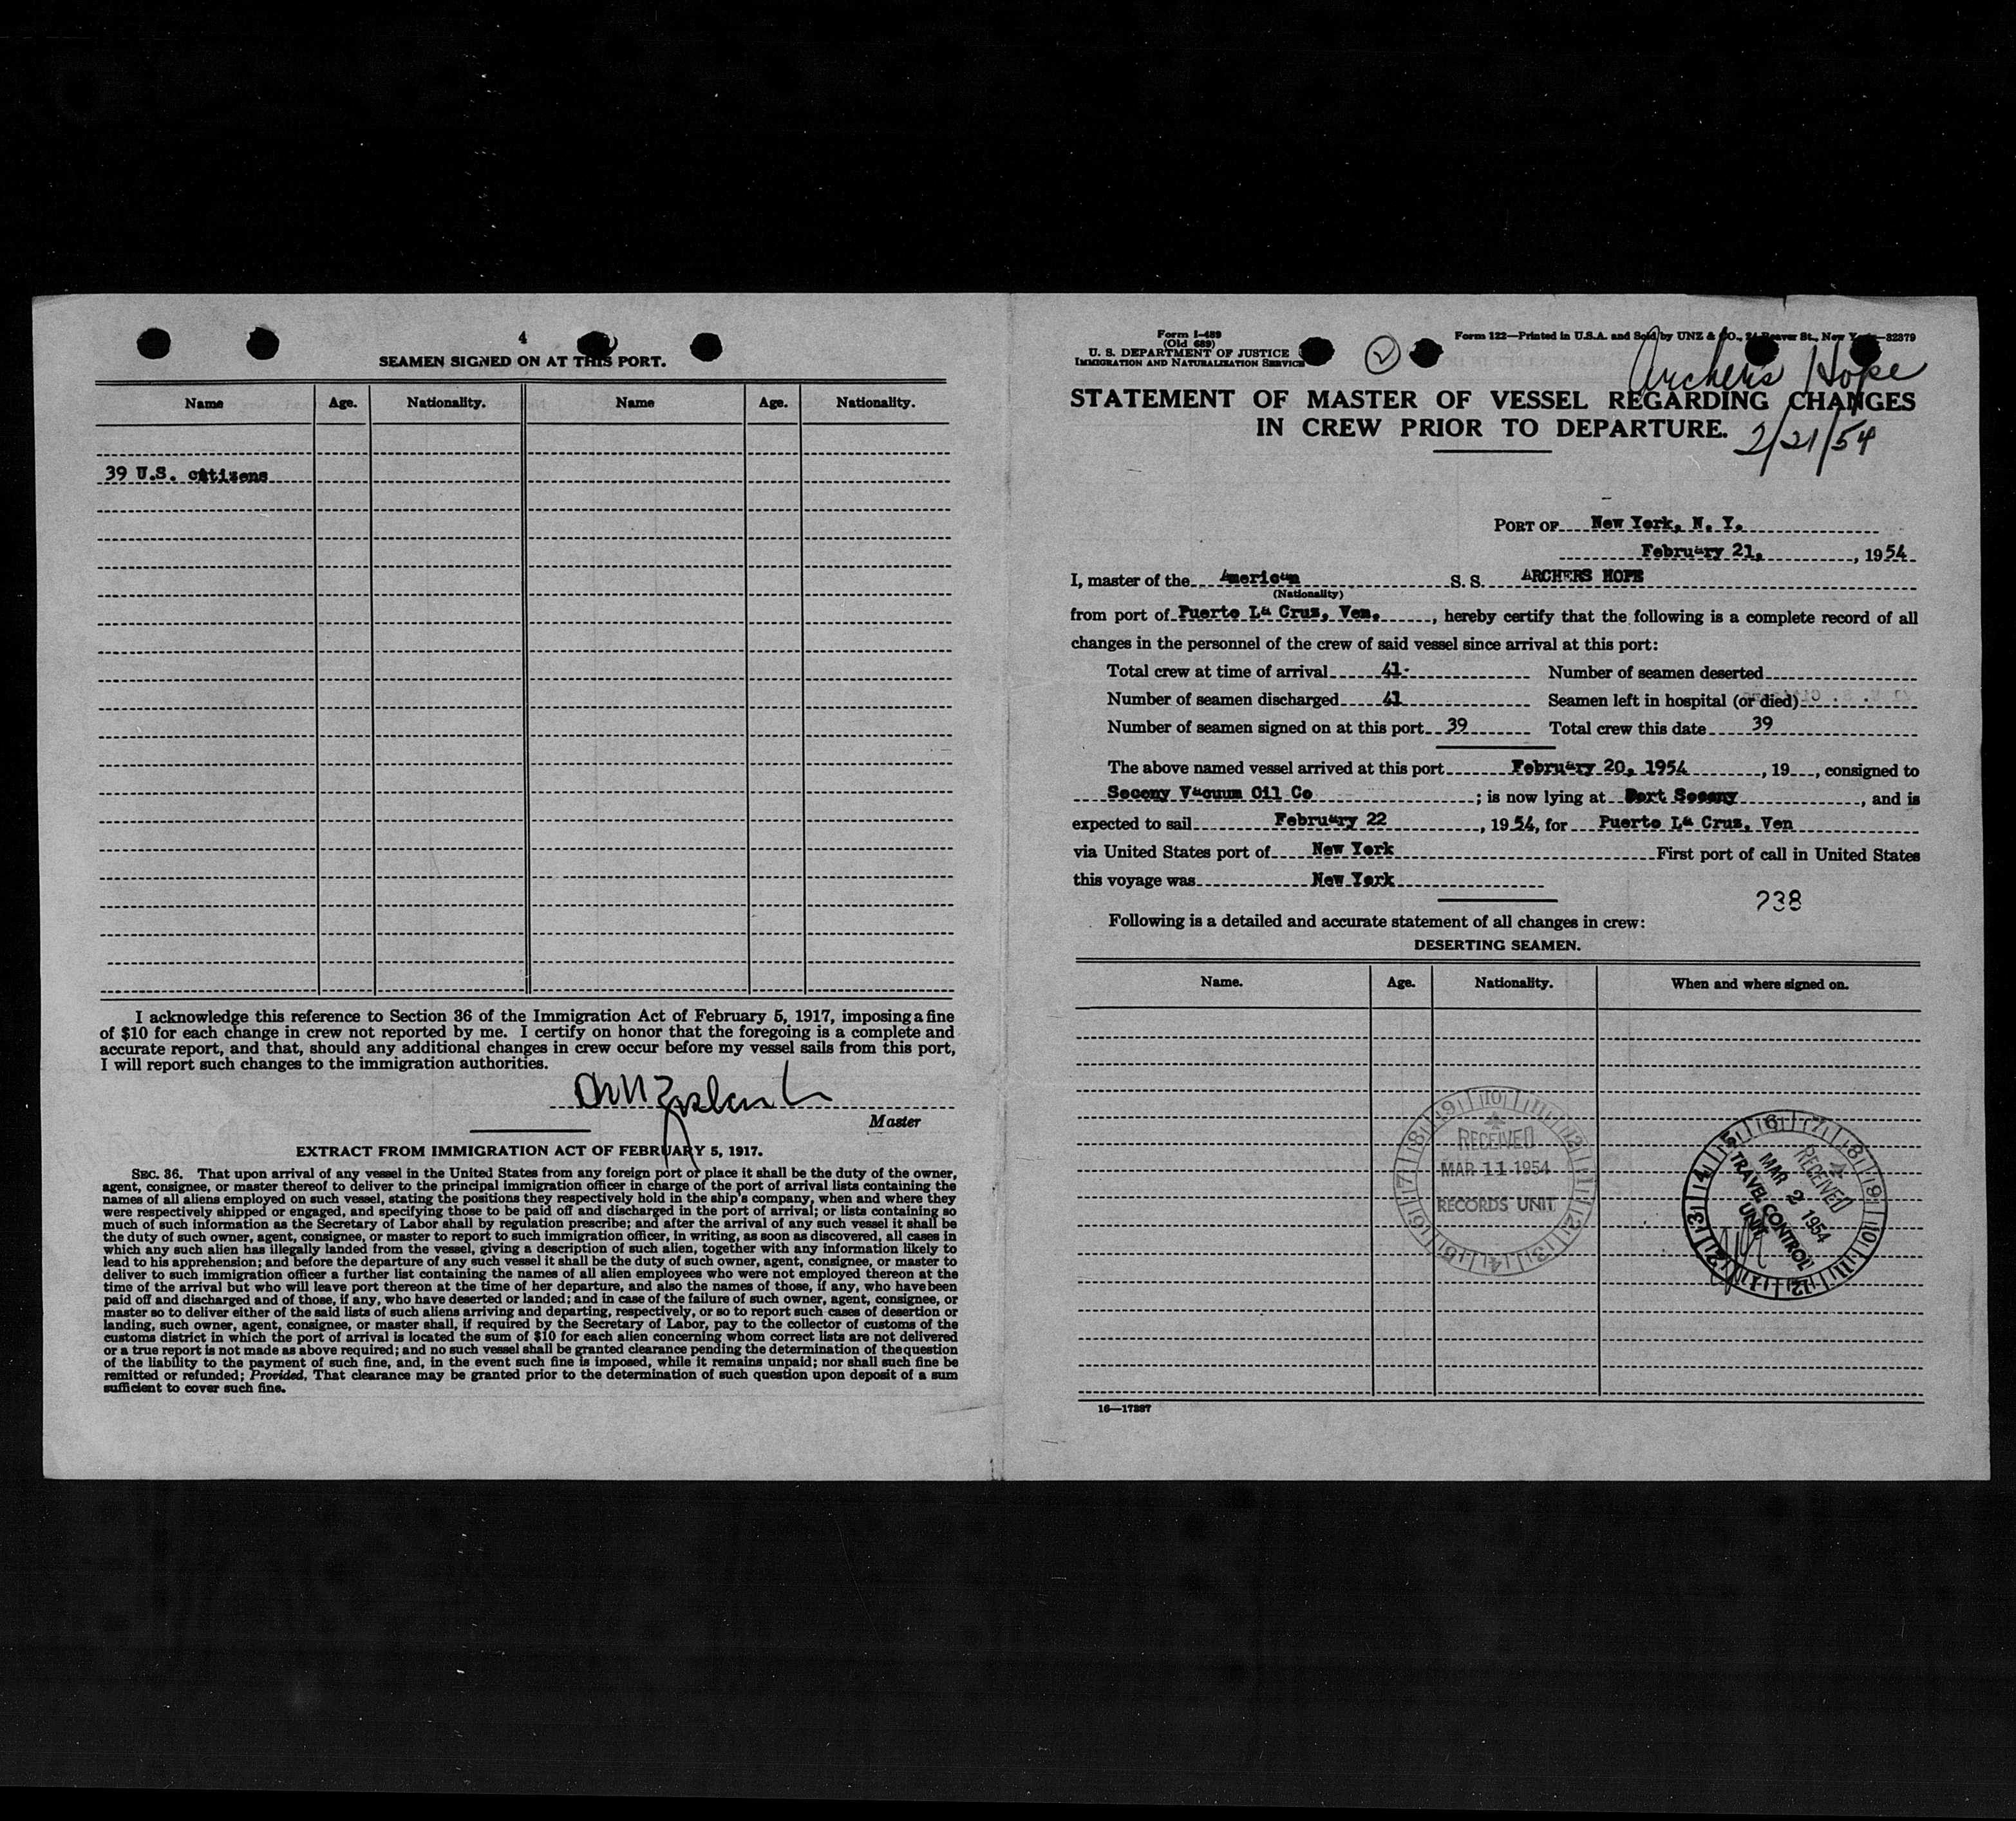 4
SEAMEN SIGNED ON AT THIS PORT.
Name Age. Nationality. Name Age. Nationality.
39 U.S. citizens
I acknowledge this reference to Section 36 of the Immigration Act of February 5, 1917, imposing a fine
of $10 for each change in crew not reported by me. I certify on honor that the foregoing is a complete and
accurate report, and that, should any additional changes in crew occur before my vessel sails from this port,
I will report such changes to the immigration authorities.
Master
EXTRACT FROM IMMIGRATION ACT OF FEBRUARY 5, 1917.
SEC. 36. That upon arrival of any vessel in the United States from any foreign port or place it shall be the duty of the owner,
agent, consignee, or master thereof to deliver to the principal immigration officer in charge of the port of arrival lists containing the
names of all aliens employed on such vessel, stating the positions they respectively hold in the ship's company, when and where they
were respectively shipped or engaged, and specifying those to be paid off and discharged in the port of arrival; or lists containing so
much of such information as the Secretary of Labor shall by regulation prescribe; and after the arrival of any such vessel it shall be
the duty of such owner, agent, consignee, or master to report to such immigration officer, in writing, as soon as discovered, all cases in
which any such alien has illegally landed from the vessel, giving a description of such alien, together with any information likely to
lead to his apprehension; and before the departure of any such vessel it shall be the duty of such owner, agent, consignee, or master to
deliver to such immigration officer a further list containing the names of all alien employees who were not employed thereon at the
time of the arrival but who will leave port thereon at the time of her departure, and also the names of those, if any, who have been
paid off and discharged and of those, if any, who have deserted or landed; and in case of the failure of such owner, agent, consignee, or
master so to deliver either of the said lists of such aliens arriving and departing, respectively, or so to report such cases of desertion or
landing, such owner, agent, consignee, or master shall, if required by the Secretary of Labor, pay to the collector of customs of the
customs district in which the port of arrival is located the sum of $10 for each alien concerning whom correct lists are not delivered
or a true report is not made as above required; and no such vessel shall be granted clearance pending the determination of the question
of the liability to the payment of such fine, and, in the event such fine is imposed, while it remains unpaid; nor shall such fine be
remitted or refunded; Provided, That clearance may be granted prior to the determination of such question upon deposit of a sum
sufficient to cover such fine.
Form I-489
(Old 689)
U. S. DEPARTMENT OF JUSTICE
IMMIGRATION AND NATURALIZATION SERVICE
2
Form 122—Printed in U.S.A. and Sold by UNZ & CO., 24 Beaver St., New York—32379
Archers Hope
STATEMENT OF MASTER OF VESSEL REGARDING CHANGES
IN CREW PRIOR TO DEPARTURE.
2/21/54
PORT OF New York, N. Y.
February 21, , 1954
I, master of the American S. S. ARCHERS HOPE
(Nationality)
from port of Puerto La Cruz, Ven. , hereby certify that the following is a complete record of all
changes in the personnel of the crew of said vessel since arrival at this port:
Total crew at time of arrival 41 Number of seamen deserted
Number of seamen discharged 41 Seamen left in hospital (or died)
Number of seamen signed on at this port 39 Total crew this date 39
The above named vessel arrived at this port February 20, 1954 , 19 , consigned to
Socony Vacuum Oil Co ; is now lying at Port Socony , and is
expected to sail February 22 , 1954, for Puerto La Cruz, Ven
via United States port of New York First port of call in United States
this voyage was New York
238
Following is a detailed and accurate statement of all changes in crew:
DESERTING SEAMEN.
Name. Age. Nationality. When and where signed on.
RECEIVED
MAR 11 1954
RECORDS UNIT
RECEIVED
MAR 2 1954
TRAVEL CONTROL
UNIT
16—17887